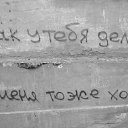 ак у тебя дел
меня тоже хо